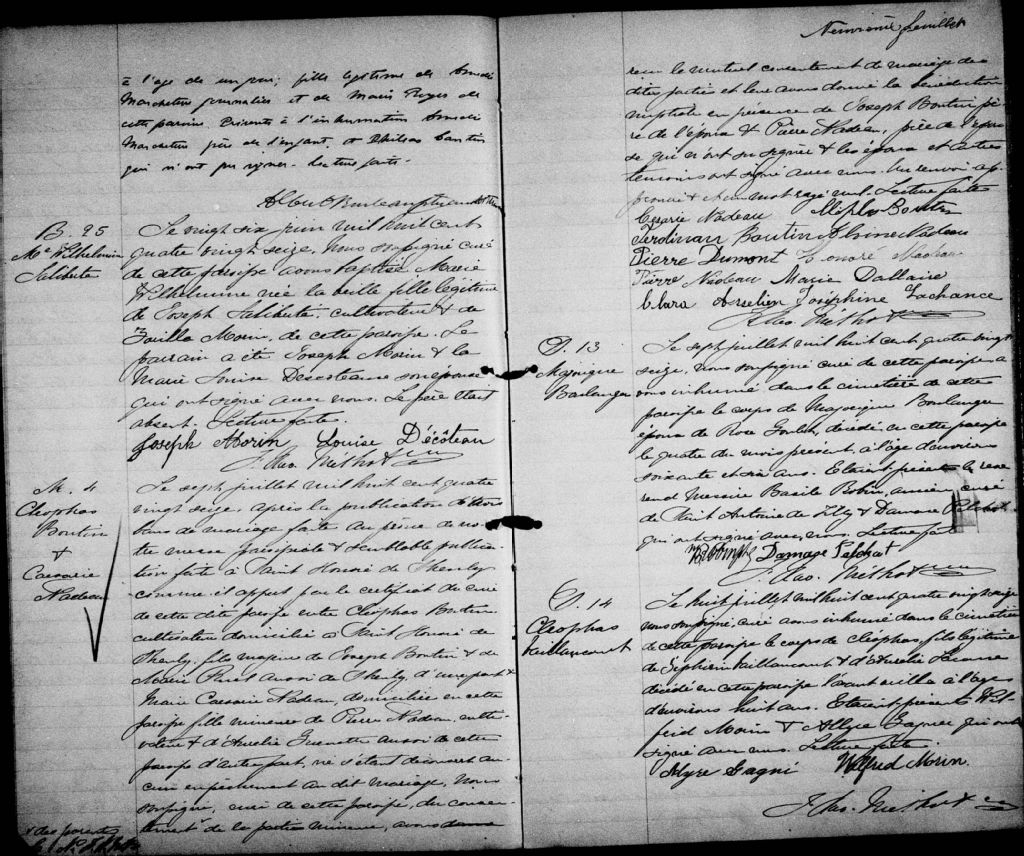 à l'age de un an; fille legitime de
Marcheterre journalier et de Marie
cette paroisse. Présents à l'inhumation
Marcheterre père de l'enfant, et
qui n'ont pu signer. Lecture faite.
B. 25
Me Wilhelmine
Laliberté
Le vingt six juin mil huit cent
quatre vingt seize, nous soussigné curé
de cette paroisse avons baptisé Marie
Wilhelmine née la veille fille legitime
de Joseph Laliberté, cultivateur & de
Morin, de cette paroisse. Le
parrain a été Joseph Morin & la
Marie Louise Decoteaux son épouse
qui ont signé avec nous. Le père était
absent. Lecture faite.
Joseph Morin Louise Décoteau
J. Hao. Méthot
M. 4
Cléophas
Boutin
&
Cesarie
Nadeau
Le sept juillet mil huit cent quatre
vingt seize, après la publication de trois
bans de mariage faite au prône de no-
tre messe paroissiale & semblable publica-
tion faite à Saint Honoré de Shenly
comme il appert par le certificat du curé
de cette dite paroisse entre Cléophas Boutin
cultivateur domicilié à Saint Honoré de
Shenly, fils majeur de Joseph Boutin & de
Marie aussi de Shenly, d'une part &
Marie Cesarie Nadeau, domiciliée en cette
paroisse fille mineure de Pierre Nadeau culti-
vateur & d'Aurelie aussi de cette
paroisse d'autre part, ne s'étant découvert au-
cun empêchement au dit mariage, Nous
soussigné, curé de cette paroisse, du consen-
tement de la partie mineure, avons
& des parents
Neuvième feuillet
reçu le mutuel consentement de mariage des
dites parties et leur avons donné la bénédiction
nuptiale en présence de Joseph Boutin pè-
re de l'époux & Pierre Nadeau, père de l'épou-
se qui n'ont su signer & les époux et autres
temoins ont signé avec nous. Un renvoi ap-
prouvé & un mot rayé nul. Lecture faite
Cesarie Nadeau Boutin
Ferdinan Boutin Nadeau
Pierre Dumont Honoré Nadeau
Pierre Nadeau Marie Dallaire
Clara Joséphine Lachance
J. Hao. Méthot
S. 13
Majorique
Boulanger
Le sept juillet mil huit cent quatre vingt
seize, nous soussigné curé de cette paroisse a-
vons inhumé dans le cimetière de cette
paroisse le corps de Majorique Boulanger
époux de Rose Goulet, décédé en cette paroisse
le quatre du mois présent, à l'âge d'environ
soixante et six ans. Etaient présents le reve
rend Messire Basile Robin, ancien curé
de Saint Antoine de Tilly & Damase
qui ont signé avec nous. Lecture faite
Damase
J. Hao. Méthot
S. 14
Cléophas
Vaillancourt
Le huit juillet mil huit cent quatre vingt seize
nous soussigné, curé avons inhumé dans le cimetière
de cette paroisse le corps de Cléophas, fils légitime
de Zéphirin Vaillancourt & d'Aurelie
décédé en cette paroisse l'avant veille à l'âge
d'environ huit ans. Etaient présents Wil
freid Morin & Alyre Gagné qui ont
signé avec nous. Lecture faite.
Alyre Gagné Wilfred Morin.
J. Hao. Méthot